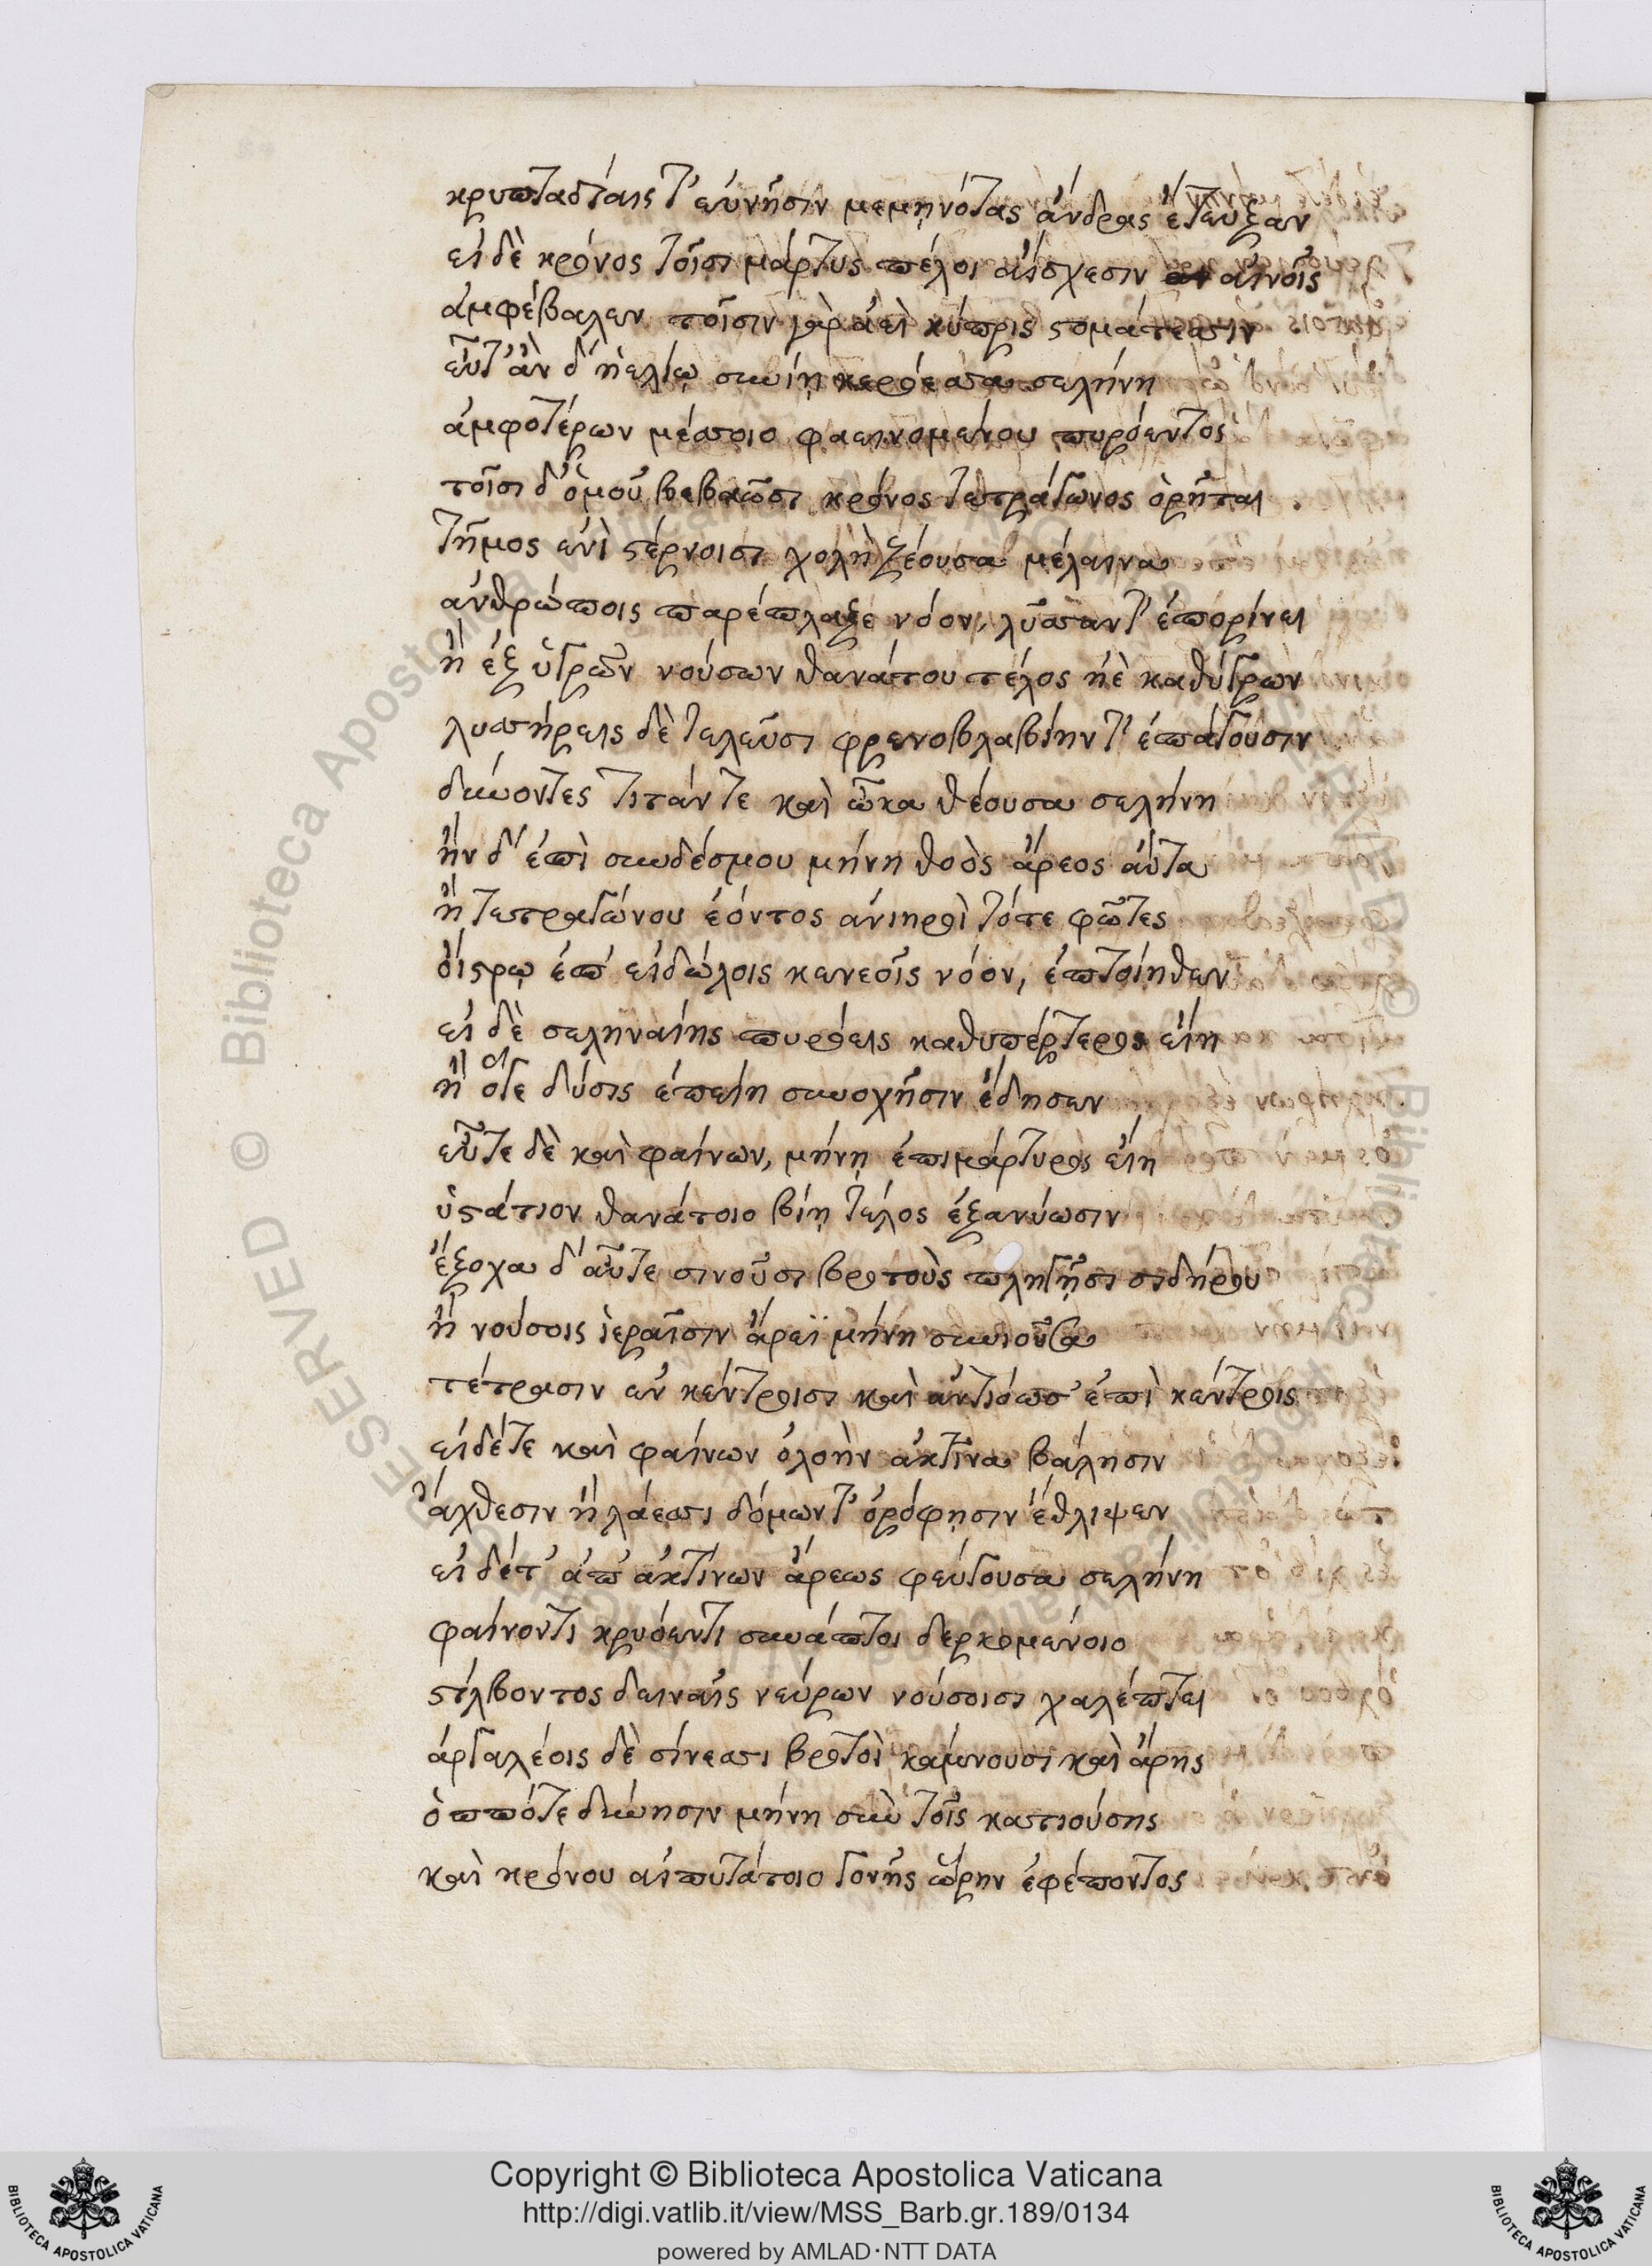 κρυπταδίαις τ' εὐνῆσιν μεμηνότας ἄνδρας ἔτευξαν
εἰ δὲ κρόνος τοῖσι μάρτυς πέλοι αἴσχεσιν αἰνοῖς
ἀμφέβαλεν τοῖσιν γὰρ ἀεὶ κύπρις στομάτεσσιν
εὖτ' ἂν δ' ἠελίῳ συνίῃ κερόεσσα σελήνη
ἀμφοτέρων μέσσοιο φαεινομένου πυρόεντος
τοῖσι δ' ὁμοῦ βεβαῶσι κρόνος τετράγωνος ὁρῆται
τῆμος ἐνὶ στέρνοισι χολὴ ζέουσα μέλαινα
ἀνθρώποις παρέπλαξε νόον, λύσσαν τ' ἐπορίνει
ἢ ἐξ ὑγρῶν νούσων θανάτου τέλος ἠὲ καθύγρων
λυσσήρεις δὲ τελεῦσι φρενοβλαβίην τ' ἐπάγουσιν
διώοντες τιτάν τε καὶ ὦκα θέουσα σελήνη
ἢν δ' ἐπὶ συνδέσμου μήνη θοὸς ἄρεος ἄντα
ἢ τετραγώνου ἐόντος ἀνιηροὶ τότε φῶτες
οἴστρῳ ἐπ' εἰδώλοις κενεοῖς νόον, ἐπτοίηθεν
εἰ δὲ σεληναίης πυρόεις καθυπέρτερος εἴη
ἢ ὅτε δύσις ἐπείη συνοχῆσιν ἔδησεν
εὖτε δὲ καὶ φαίνων, μήνῃ ἐπιμάρτυρος εἴη
ὑστάτιον θανάτοιο βίῃ τέλος ἐξανύωσιν
ἔξοχα δ' αὖτε σινοῦσι βροτοὺς πληγῇσι σιδήρου
ἢ νούσοις ἱεραῖσιν ἄρεϊ μήνη συνιοῦσα
τέτρασιν ἐν κέντροισι καὶ ἀντιόωσ' ἐπὶ κέντροις
εἰ δέ τε καὶ φαίνων ὀλοὴν ἀκτῖνα βάλησιν
ἄχθεσιν ἢ λάεσσι δόμων τ' ὀρόφησιν ἔθλιψεν
εἰ δέ τ' ἀπ' ἀκτίνων ἄρεως φεύγουσα σελήνη
φαίνοντι κρυόεντι συνάπτοι δερκομένοιο
στίλβοντος δειναῖς νεύρων νούσοισι χαλέπτει
ἀργαλέοις δὲ σίνεσσι βροτοὶ κάμνουσι καὶ ἄρης
ὁππότε διώησιν μήνη σὺν τοῖς κατιούσης
καὶ κρόνου αἰπυτάτοιο γονῆς ὥρην ἐφέποντος
Copyright © Biblioteca Apostolica Vaticana
http://digi.vatlib.it/view/MSS_Barb.gr.189/0134
powered by AMLAD·NTT DATA